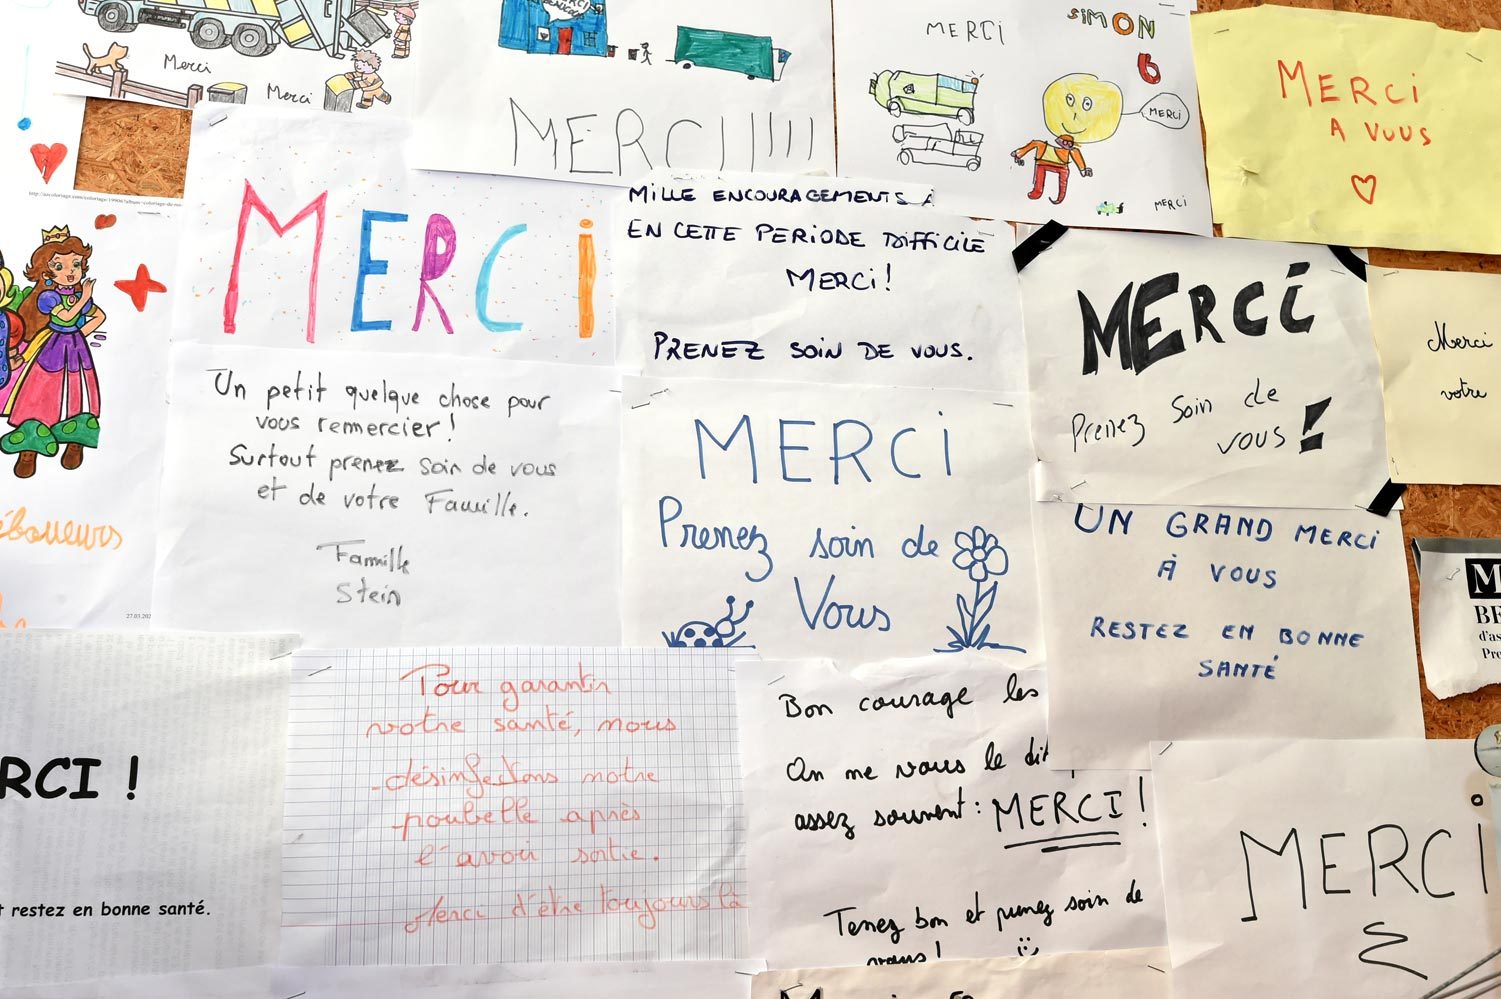 Merci
Merci
MERCI!!!!!
MERCI
SIMON
6
MERCI
MERCI
MERCI
A VOUS
http://azcoloriage.com/coloriage/19906?album=coloriage-de-no
MERCI
Un petit quelque chose pour
vous remercier!
Surtout prenez soin de vous
et de votre Famille.
Famille
Stein
MILLE ENCOURAGEMENTS À
EN CETTE PERIODE DIFFICILE
MERCI!
PRENEZ SOIN DE VOUS.
MERCI
Prenez soin de
vous!
Merci
votre
éboueurs
27.03.202
MERCI
Prenez soin de
Vous
UN GRAND MERCI
À VOUS
RESTEZ EN BONNE
SANTÉ
M
BE
d'as
Pre
RCI !
t restez en bonne santé.
Pour garantir
votre santé, nous
désinfectons notre
poubelle après
l'avoir sortie.
Merci d'être toujours là
Bon courage les
On ne vous le dit
assez souvent: MERCI!
Tenez bon et prenez soin de
vous!
MERCI